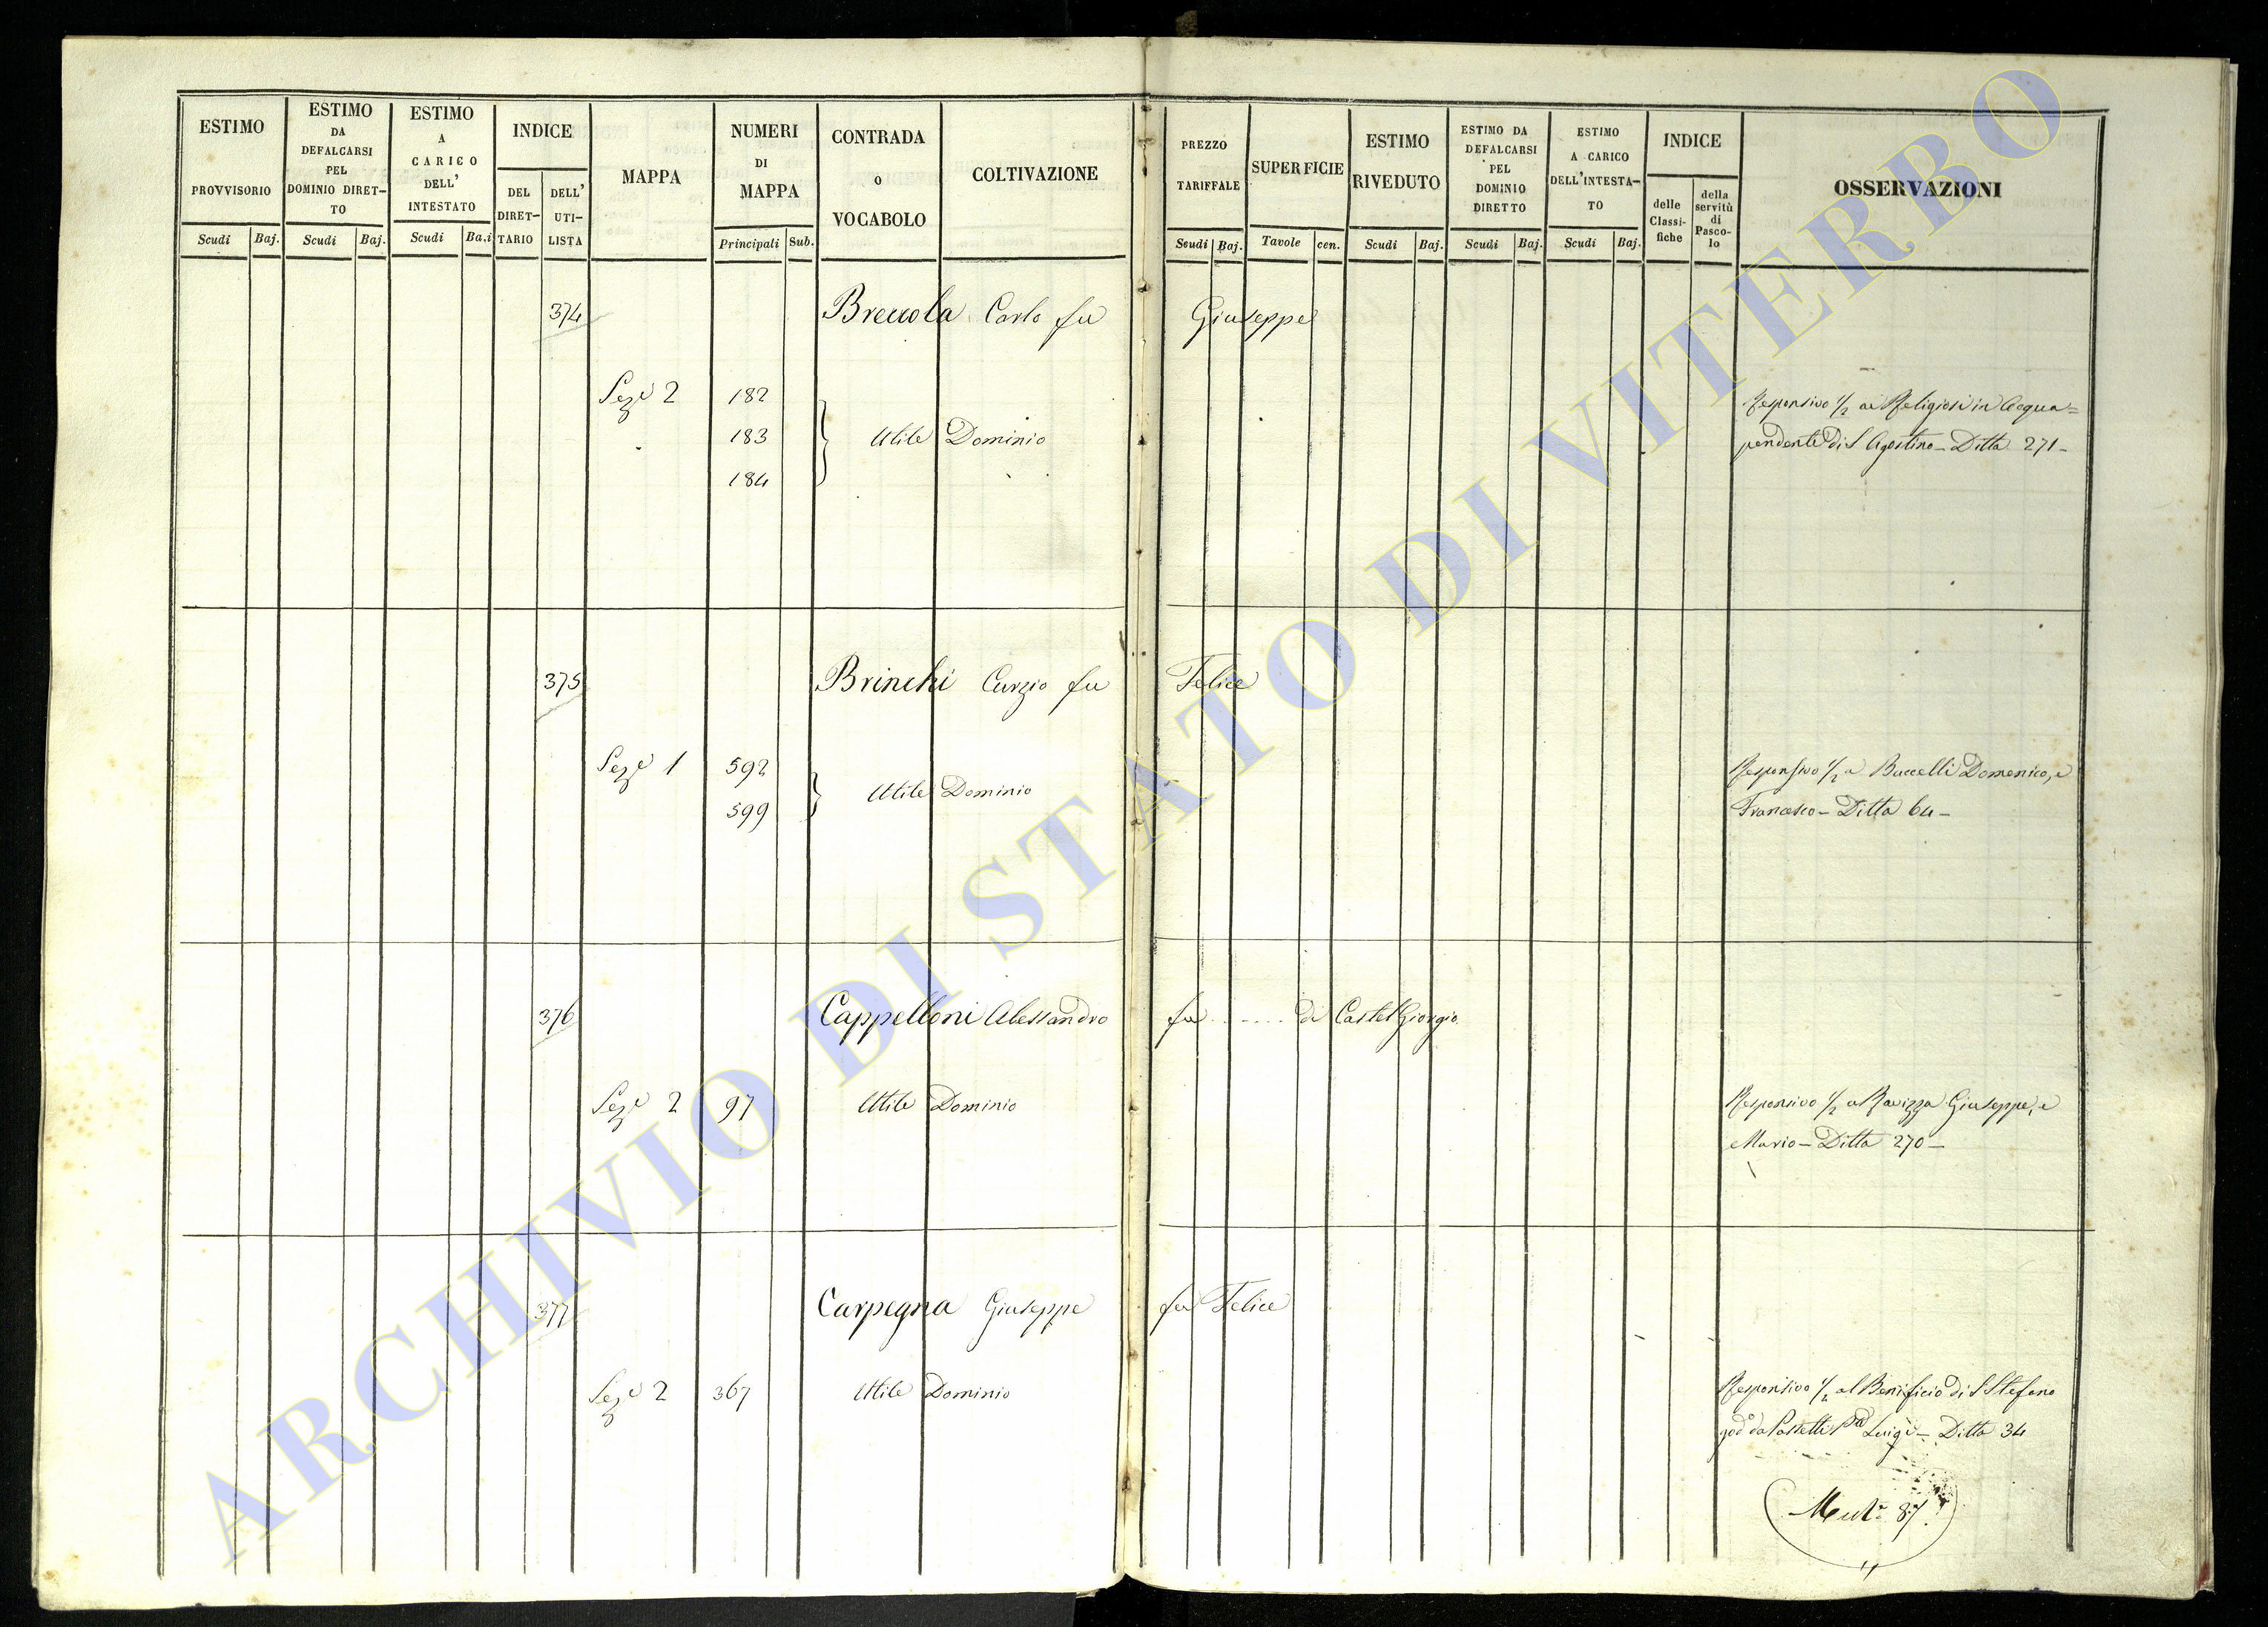 ESTIMO
PROVVISORIO
Scudi Baj.
ESTIMO
DA
DEFALCARSI
PEL
DOMINIO DIRET-
TO
Scudi Baj.
ESTIMO
A
CARICO
DELL'
INTESTATO
Scudi Ba.i
INDICE
DEL
DIRET-
TARIO
DELL'
UTI-
LISTA
MAPPA
NUMERI
DI
MAPPA
Principali Sub.
CONTRADA
O
VOCABOLO
COLTIVAZIONE
PREZZO
TARIFFALE
Scudi Baj.
SUPERFICIE
Tavole cen.
ESTIMO
RIVEDUTO
Scudi Baj.
ESTIMO DA
DEFALCARSI
PEL
DOMINIO
DIRETTO
Scudi Baj.
ESTIMO
A CARICO
DELL'INTESTA-
TO
Scudi Baj.
INDICE
delle
Classi-
fiche
della
servitù
di
Pasco-
lo
OSSERVAZIONI
374 Breccola Carlo fu Giuseppe
Seze 2 182
183 Utile Dominio
184
Responsivo 1/2 ai Religiosi in Acqua=
pendente di S Agostino - Ditta 271 -
375 Brinchi Curzio fu Felice
Seze 1 592
599 Utile Dominio
Responsivo 1/2 a Buccelli Domenico, e
Francesco - Ditta 64 -
376 Cappelloni Alessandro fu ...... di Castel Giorgio
Seze 2 97 Utile Dominio
Responsivo 1/2 a Ravizza Giuseppe, e
Mario - Ditta 270 -
377 Carpegna Giuseppe fu Felice
Seze 2 367 Utile Dominio
Responsivo 1/2 al Benificio di S Stefano
god° da Luigi - Ditta 34
Muta 87
ARCHIVIO DI STATO DI VITERBO